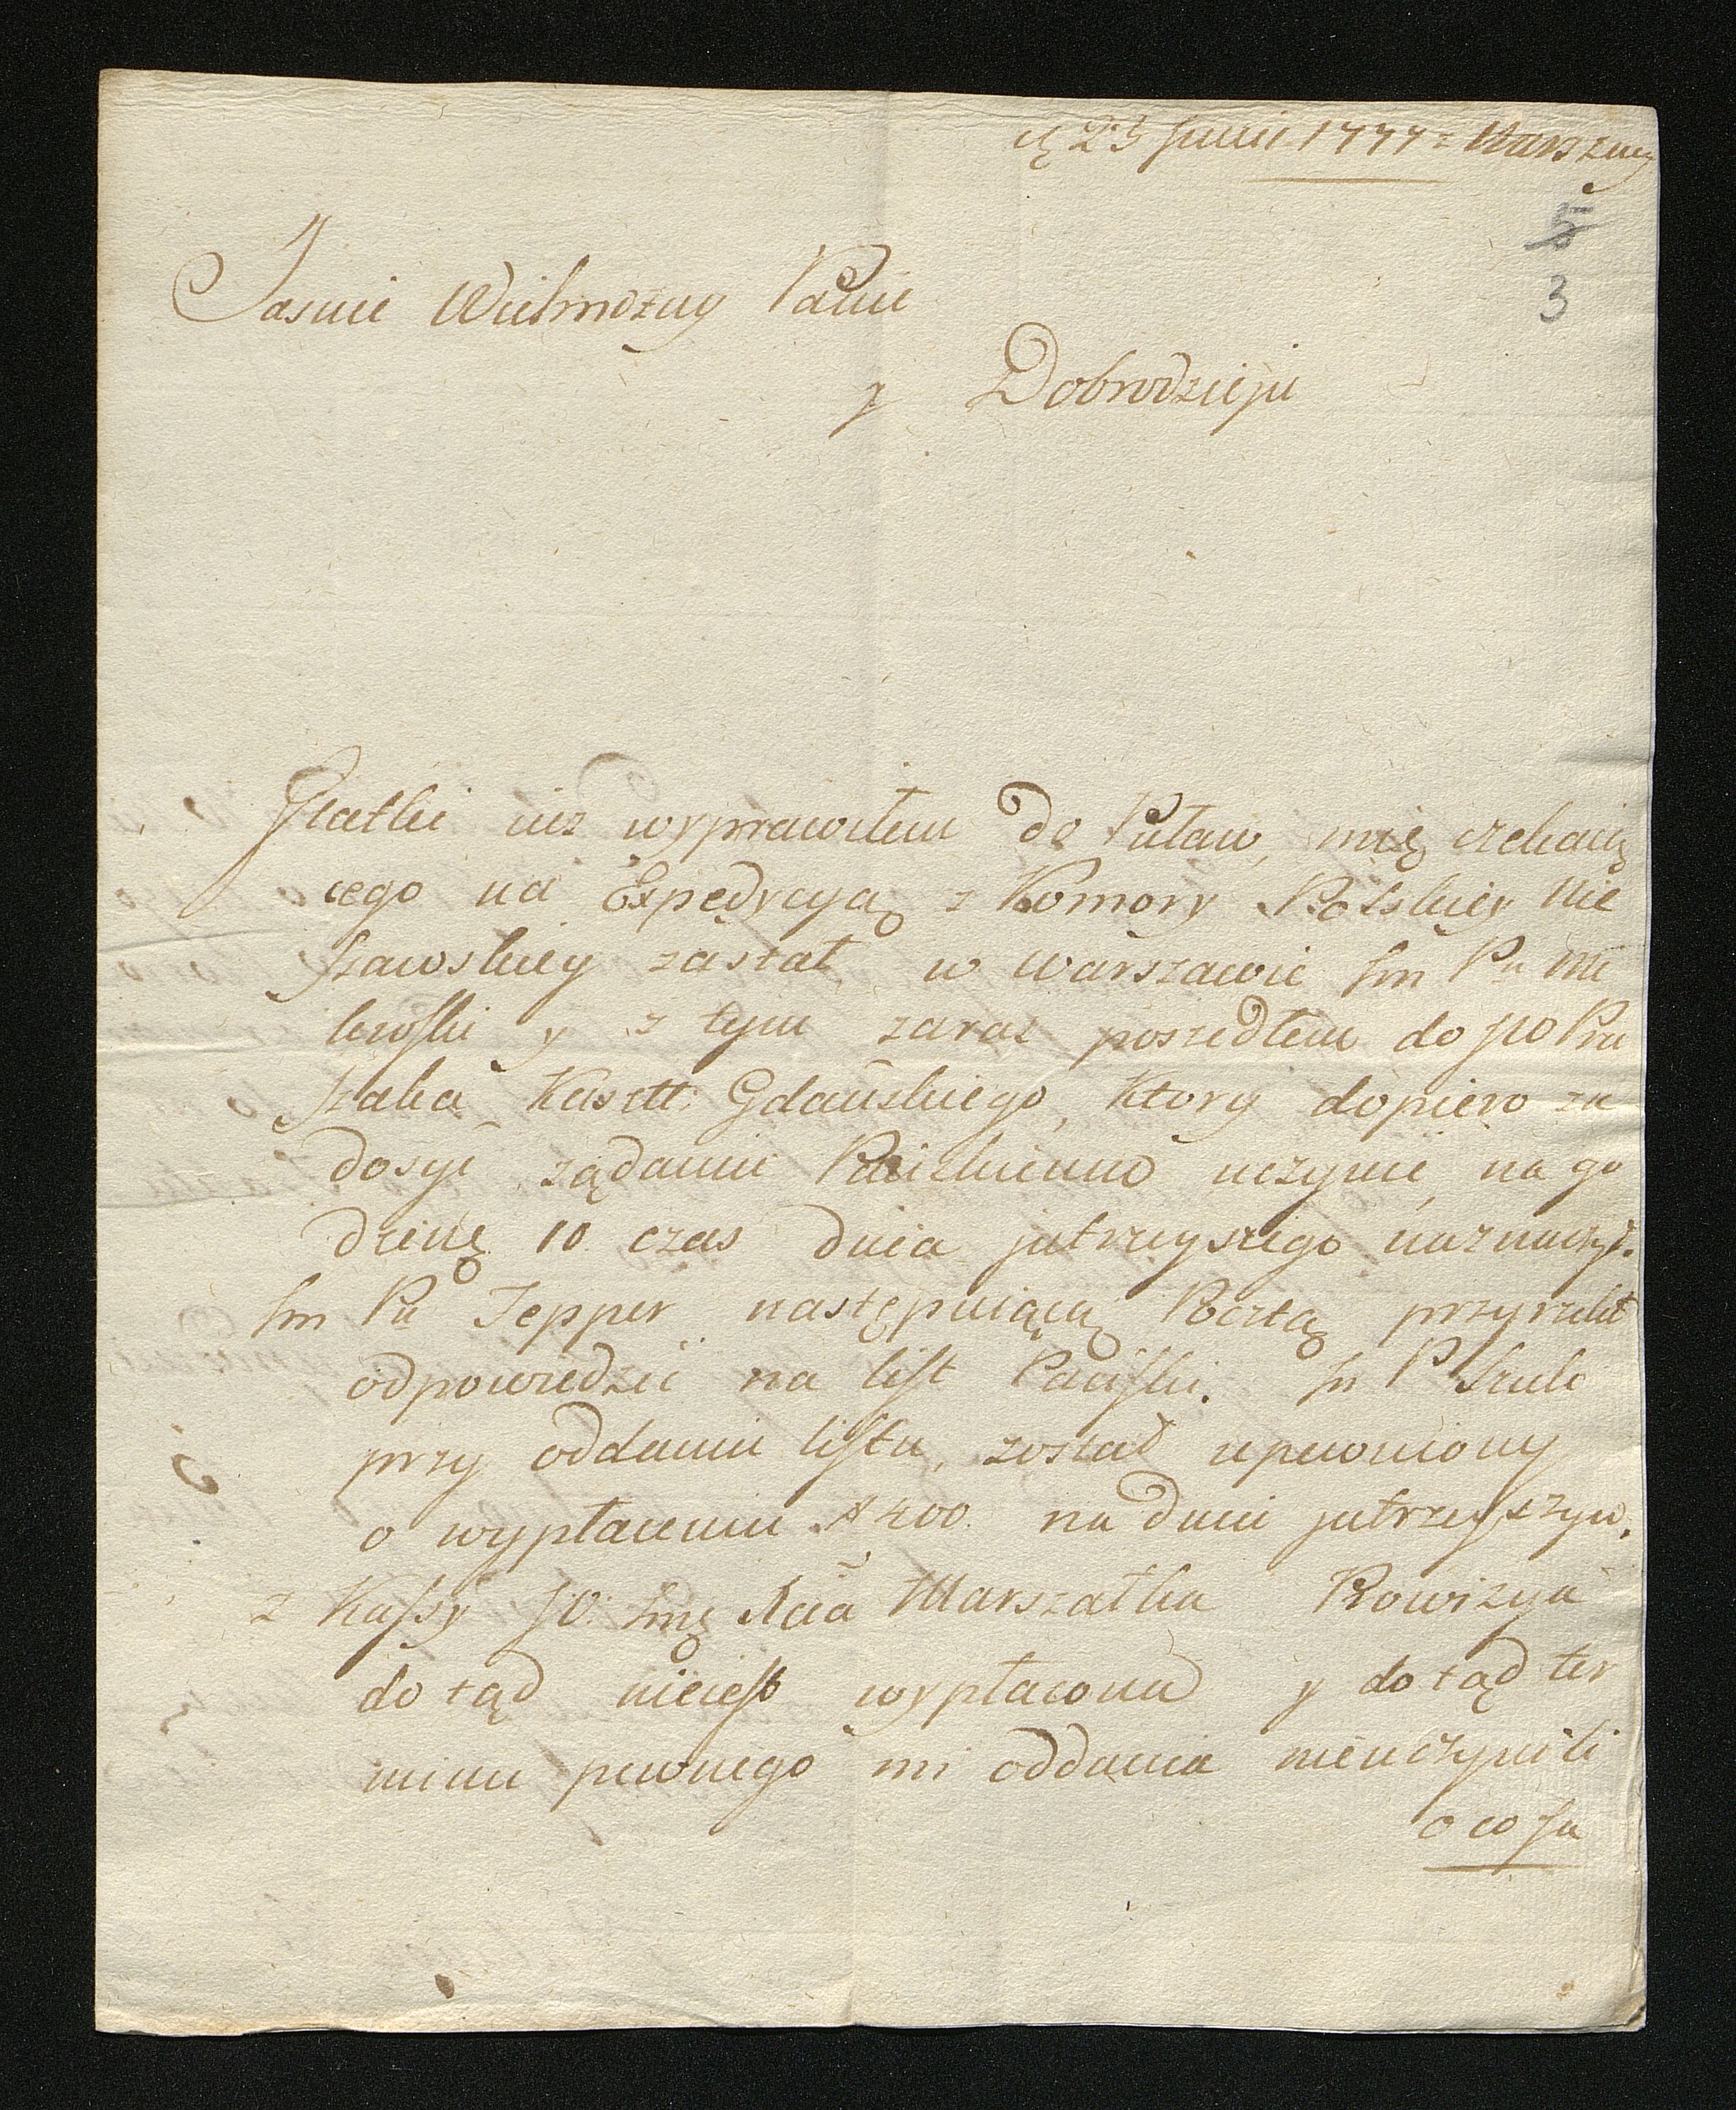 23 Junii 1777 z Warszawy
5
3
Jasnie Wielmożny Panie
y Dobrodzieju
Statki niż wyprawiłem do Puław, mię czekaią
cego na Expedycyą z Komory Polskiey Nie
szawskiey zastał w Warszawie Jm Pn
y z tym zaraz poszedłem do JO
Gdańskiego, ktory dopiero za
dosyć żądaniu Pańskiemu uczynić, na go
dzinę 10 czas dnia jutrzeyszego naznaczył.
Jm Pn Tepper następuiącą Pocztą przyrzekł
odpowiedzić na list Pański. Jm P Szulc
przy oddaniu listu, został upewniony
o wypłaceniu # 400 na dniu jutrzeyszym.
z Kassy JO: Jmę Xcia Marszałka Prowizya
do tąd nieiest wypłacona y do tąd ter
minu pewnego mi oddania nieuczynili
o co Ja